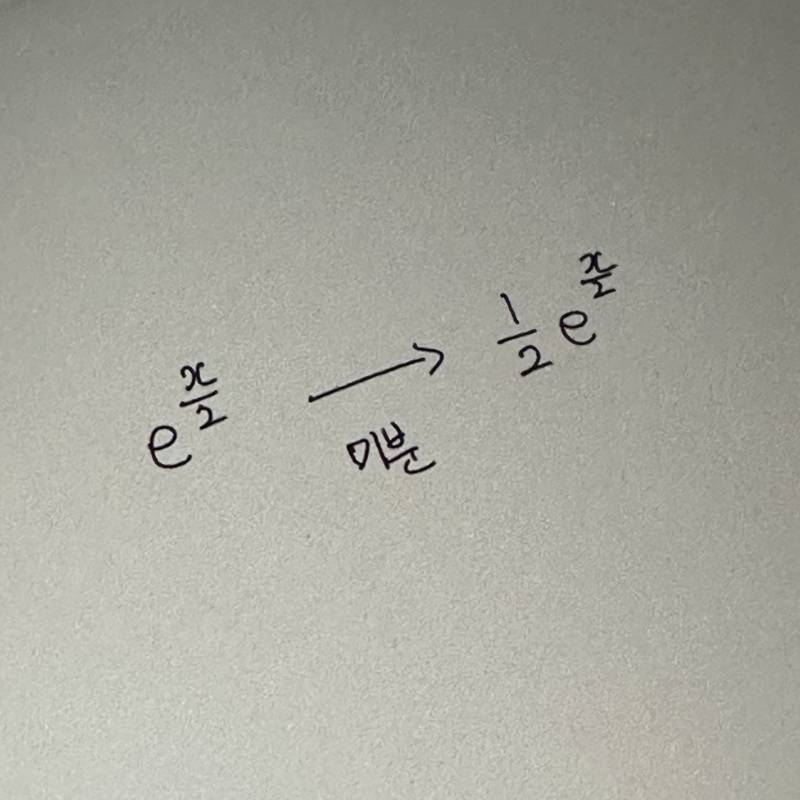 e^{\frac{x}{2}} → \frac{1}{2} e^{\frac{x}{2}}
미분